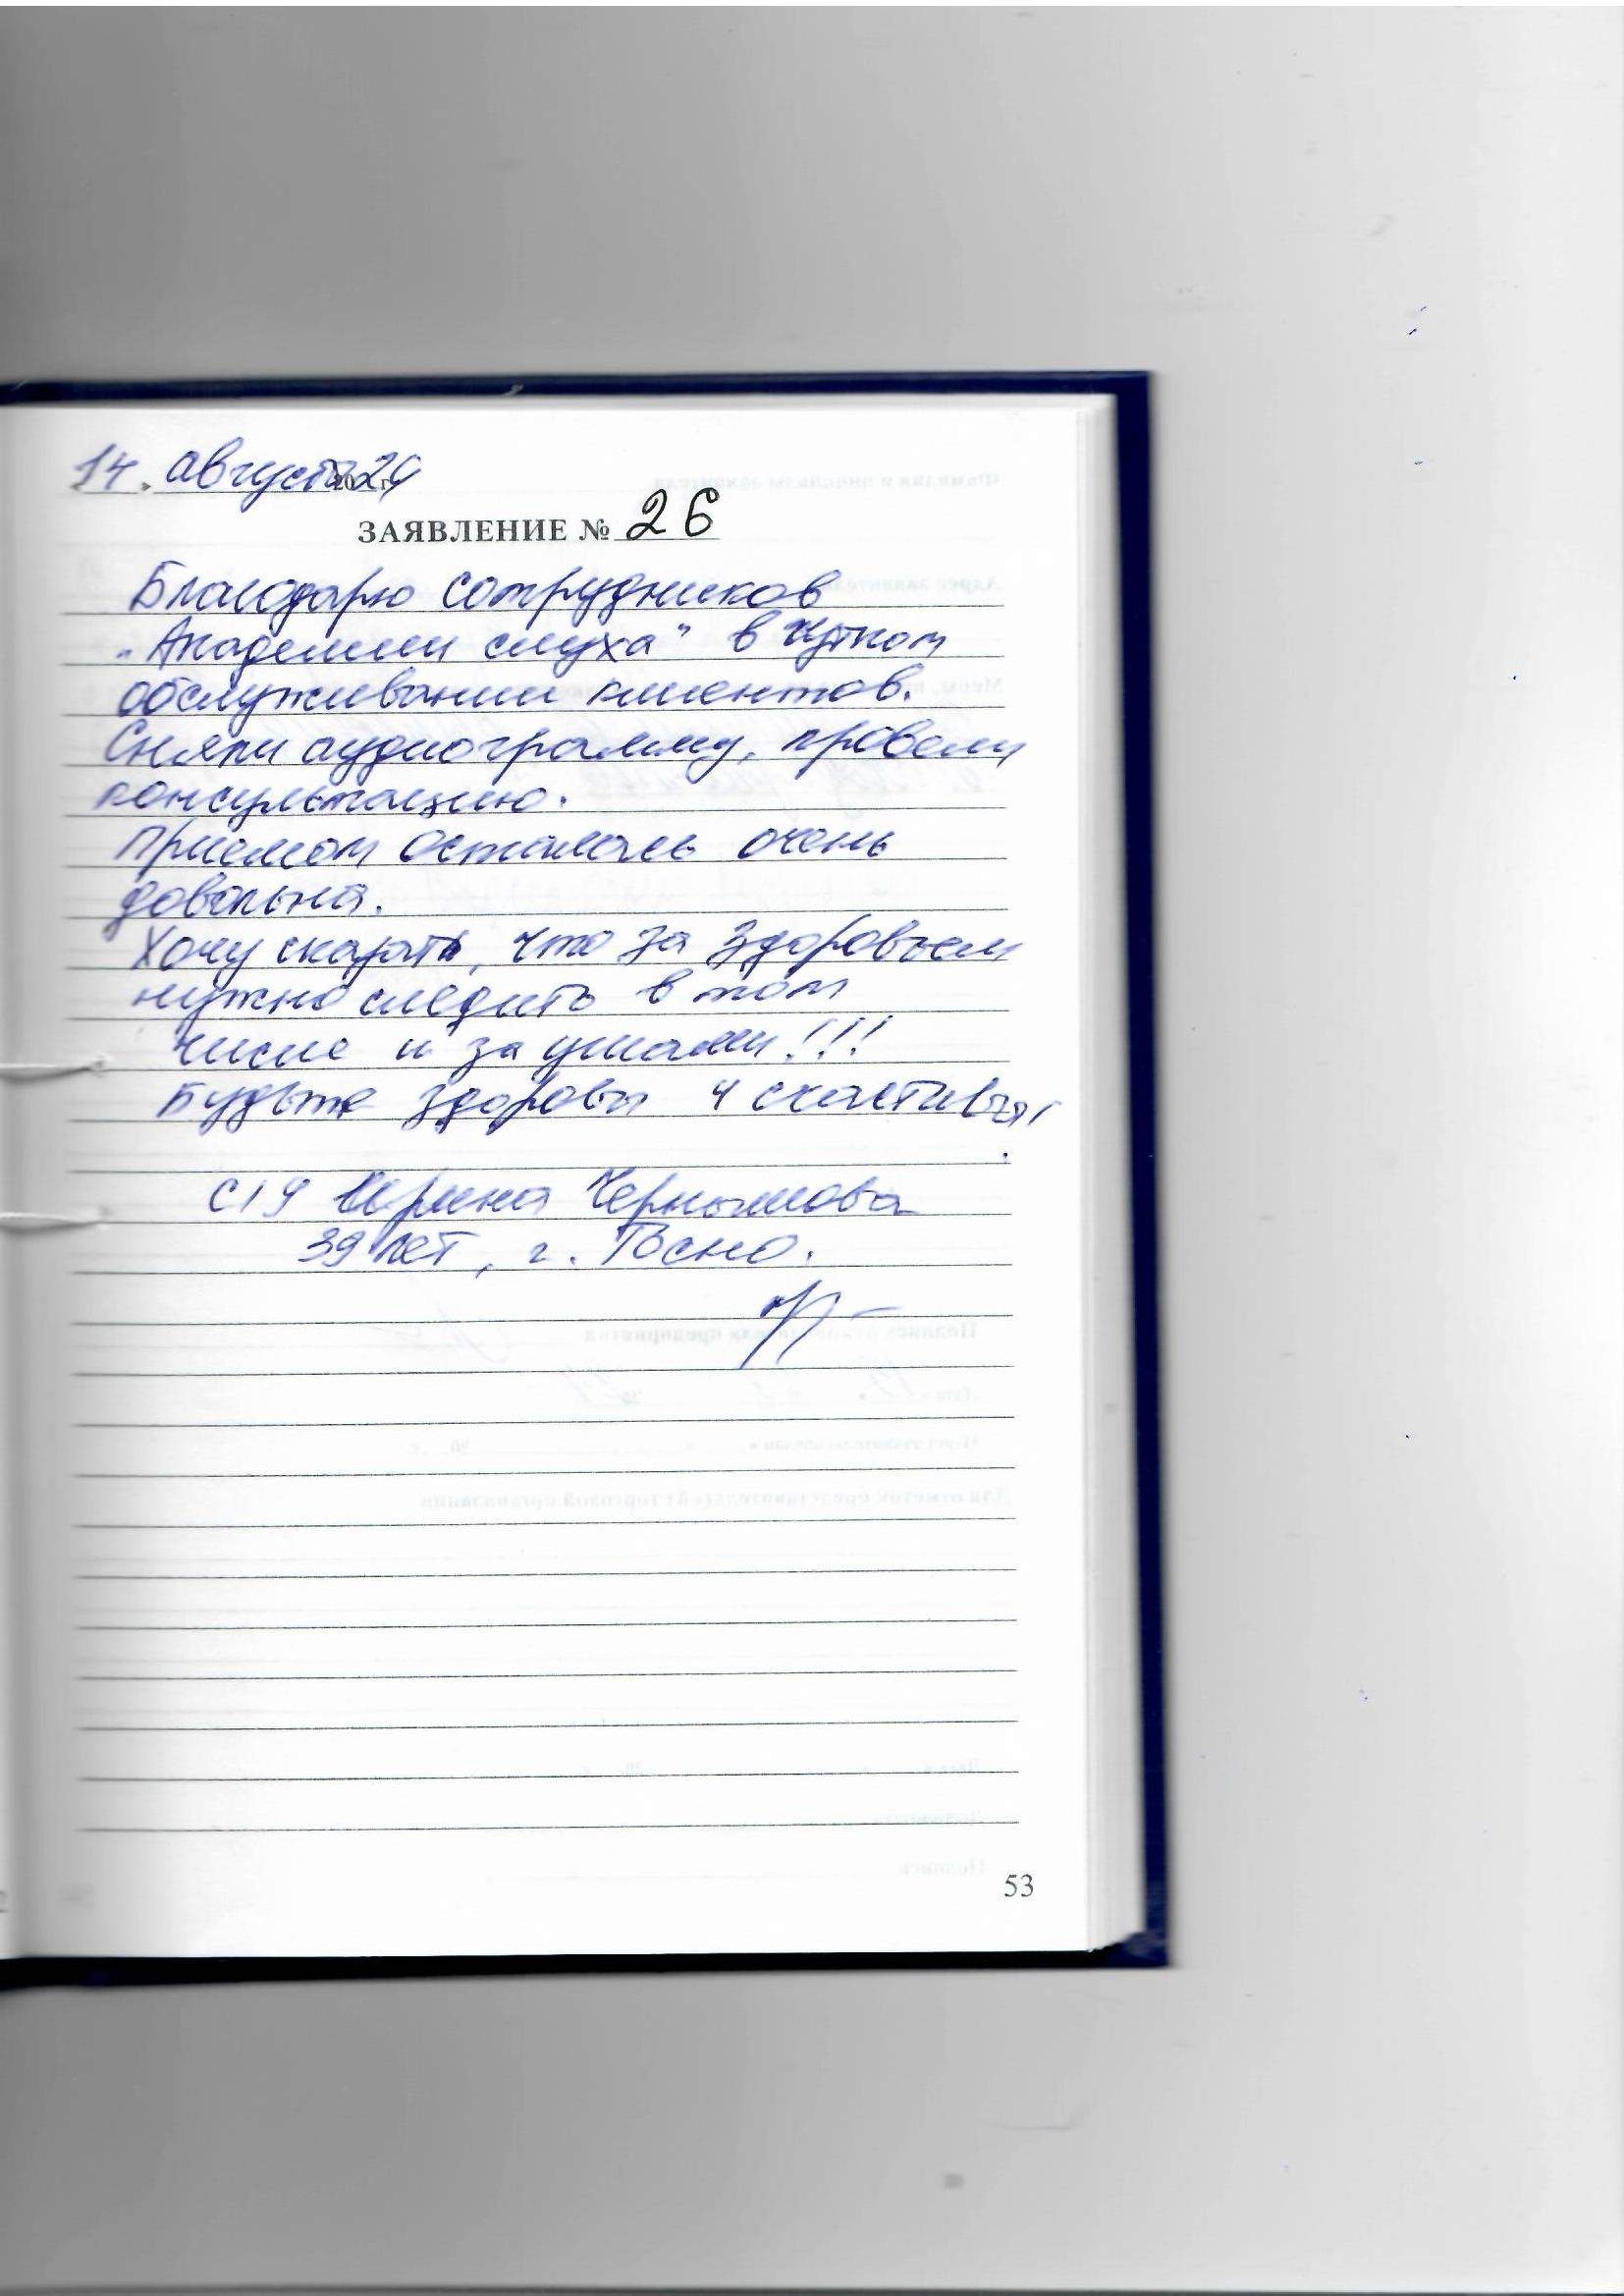 14 августа 2024
ЗАЯВЛЕНИЕ № 26
Благодарю сотрудников
"Академии слуха" в чутком
обслуживании клиентов.
Сняли аудиограмму, провели
консультацию.
Приемом осталась очень
довольна.
Хочу сказать, что за здоровьем
нужно следить в том
числе и за ушами!!!
Будьте здоровы и счастливы
.
Ирина Чернышова
39 лет, г. Тосно.
53